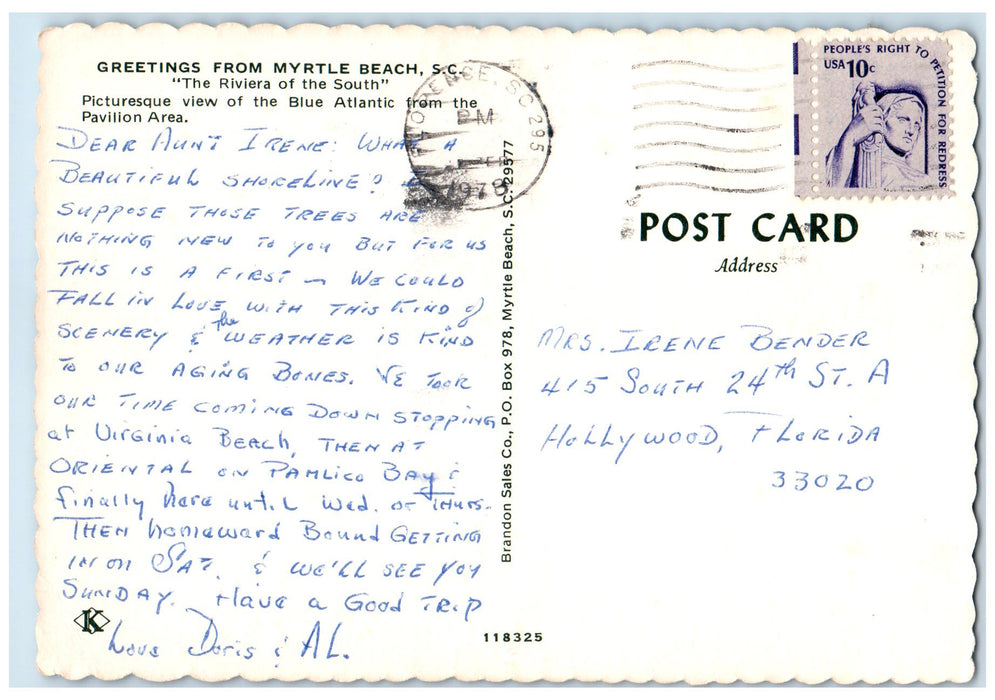 GREETINGS FROM MYRTLE BEACH, S.C.
"The Riviera of the South"
Picturesque view of the Blue Atlantic from the
Pavilion Area.
DEAR AUNT IRENE: WHAT A
BEAUTIFUL SHORELINE?
SUPPOSE THOSE TREES ARE
NOTHING NEW TO YOU BUT FOR US
THIS IS A FIRST – WE COULD
FALL IN LOVE WITH THIS KIND of
SCENERY & the WEATHER IS KIND
TO OUR AGING BONES. WE TOOK
OUR TIME COMING DOWN STOPPING
at Virginia Beach, THEN AT
ORIENTAL ON PAMLICO BAY &
finally here until Wed. or THURS.
THEN homeward Bound GETTING
IN ON SAT. & WE'LL SEE YOU
SUNDAY. Have a Good TRIP
Love Doris & AL.
K
118325
Brandon Sales Co., P.O. Box 978, Myrtle Beach, S.C. 29577
FLORENCE, SC 295
PM
1978
PEOPLE'S RIGHT TO PETITION FOR REDRESS
USA 10c
POST CARD
Address
MRS. IRENE BENDER
415 SOUTH 24th ST. A
HOLLYWOOD, FLORIDA
33020